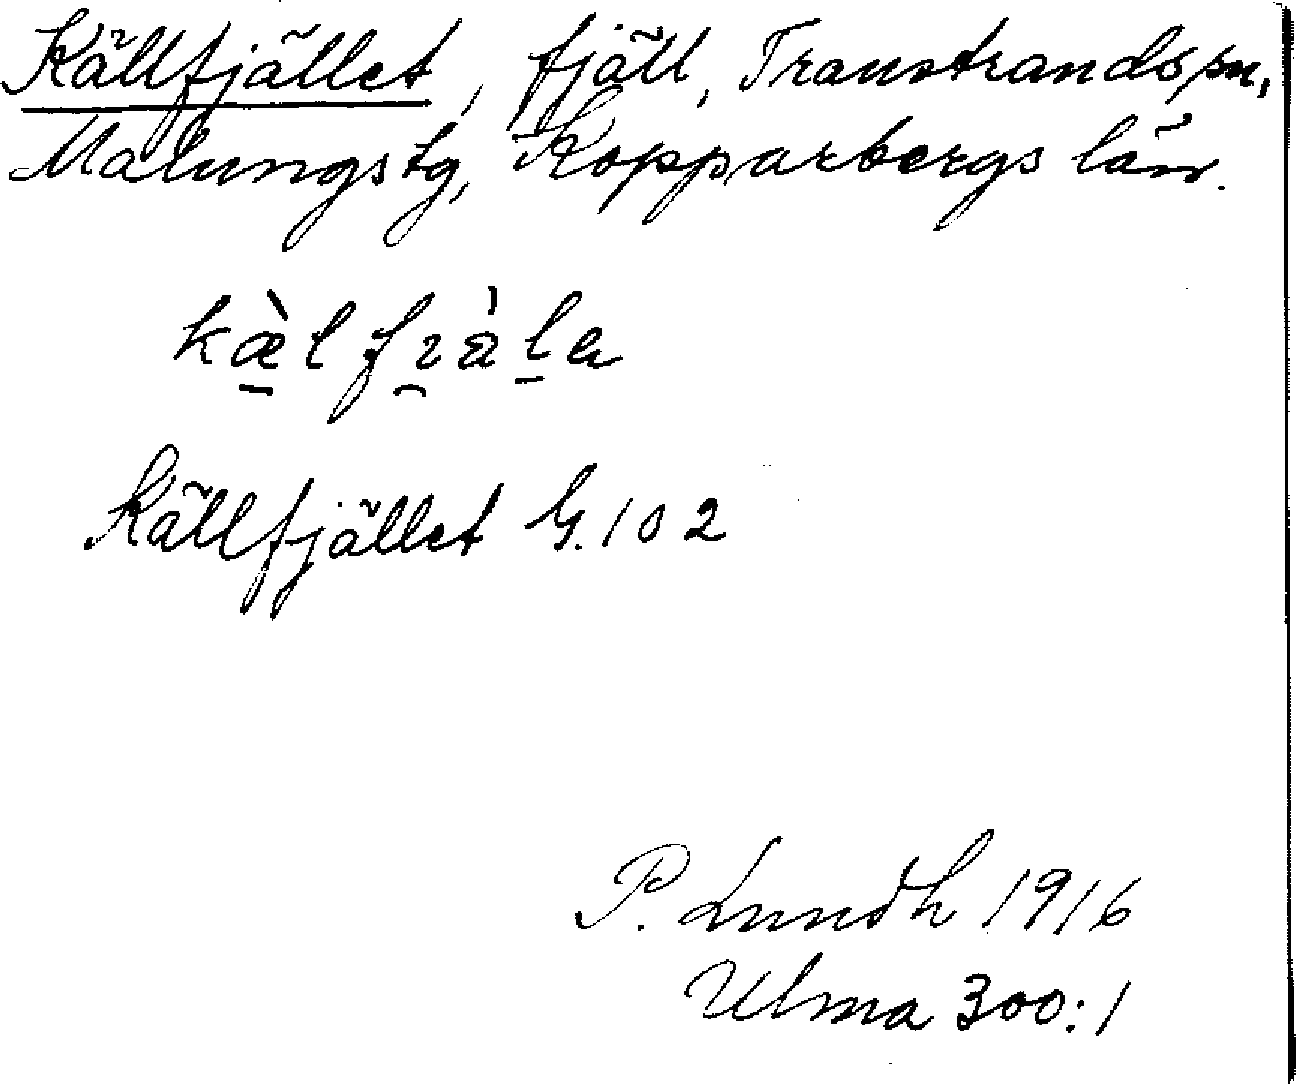 Källfjället, fjäll, Transtrands sn,
Malungs tg, Kopparbergs län.
kæ̀l fɪ̯ä̀l̠a
Källfjället G. 102
P. Lundh 1916
Ulma 300:1